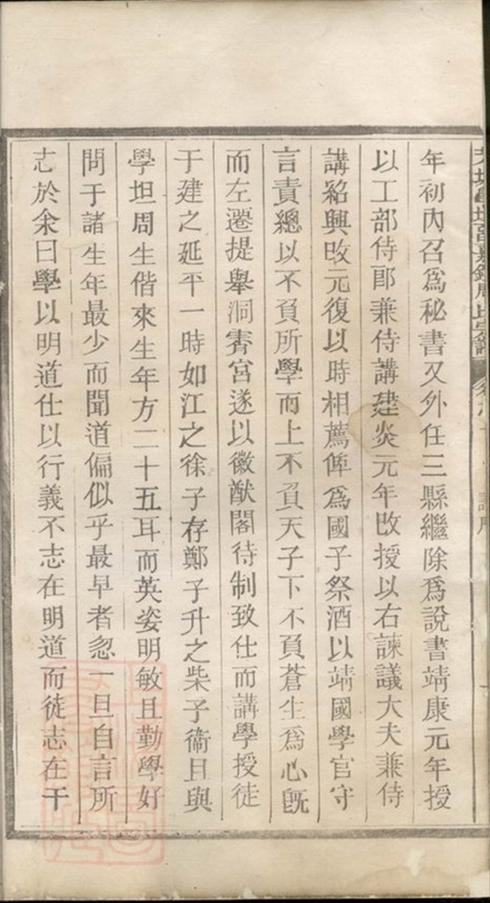 年初內召爲秘書又外任三縣繼除爲說書靖康元年授
以工部侍郎兼侍講建炎元年改授以右諫議大夫兼侍
講紹興改元復以時相薦俾爲國子祭酒以靖國學官守
言責總以不負所學而上不負天子下不負蒼生爲心旣
而左遷提舉洞霄宮遂以徽猷閣待制致仕而講學授徒
于建之延平一時如江之徐子存鄭子升之柴子衞且與
學坦周生偕來生年方二十五耳而英姿明敏且勤學好
問于諸生年最少而聞道偏似乎最早者忽一旦自言所
志於余曰學以明道仕以行義不志在明道而徒志在干